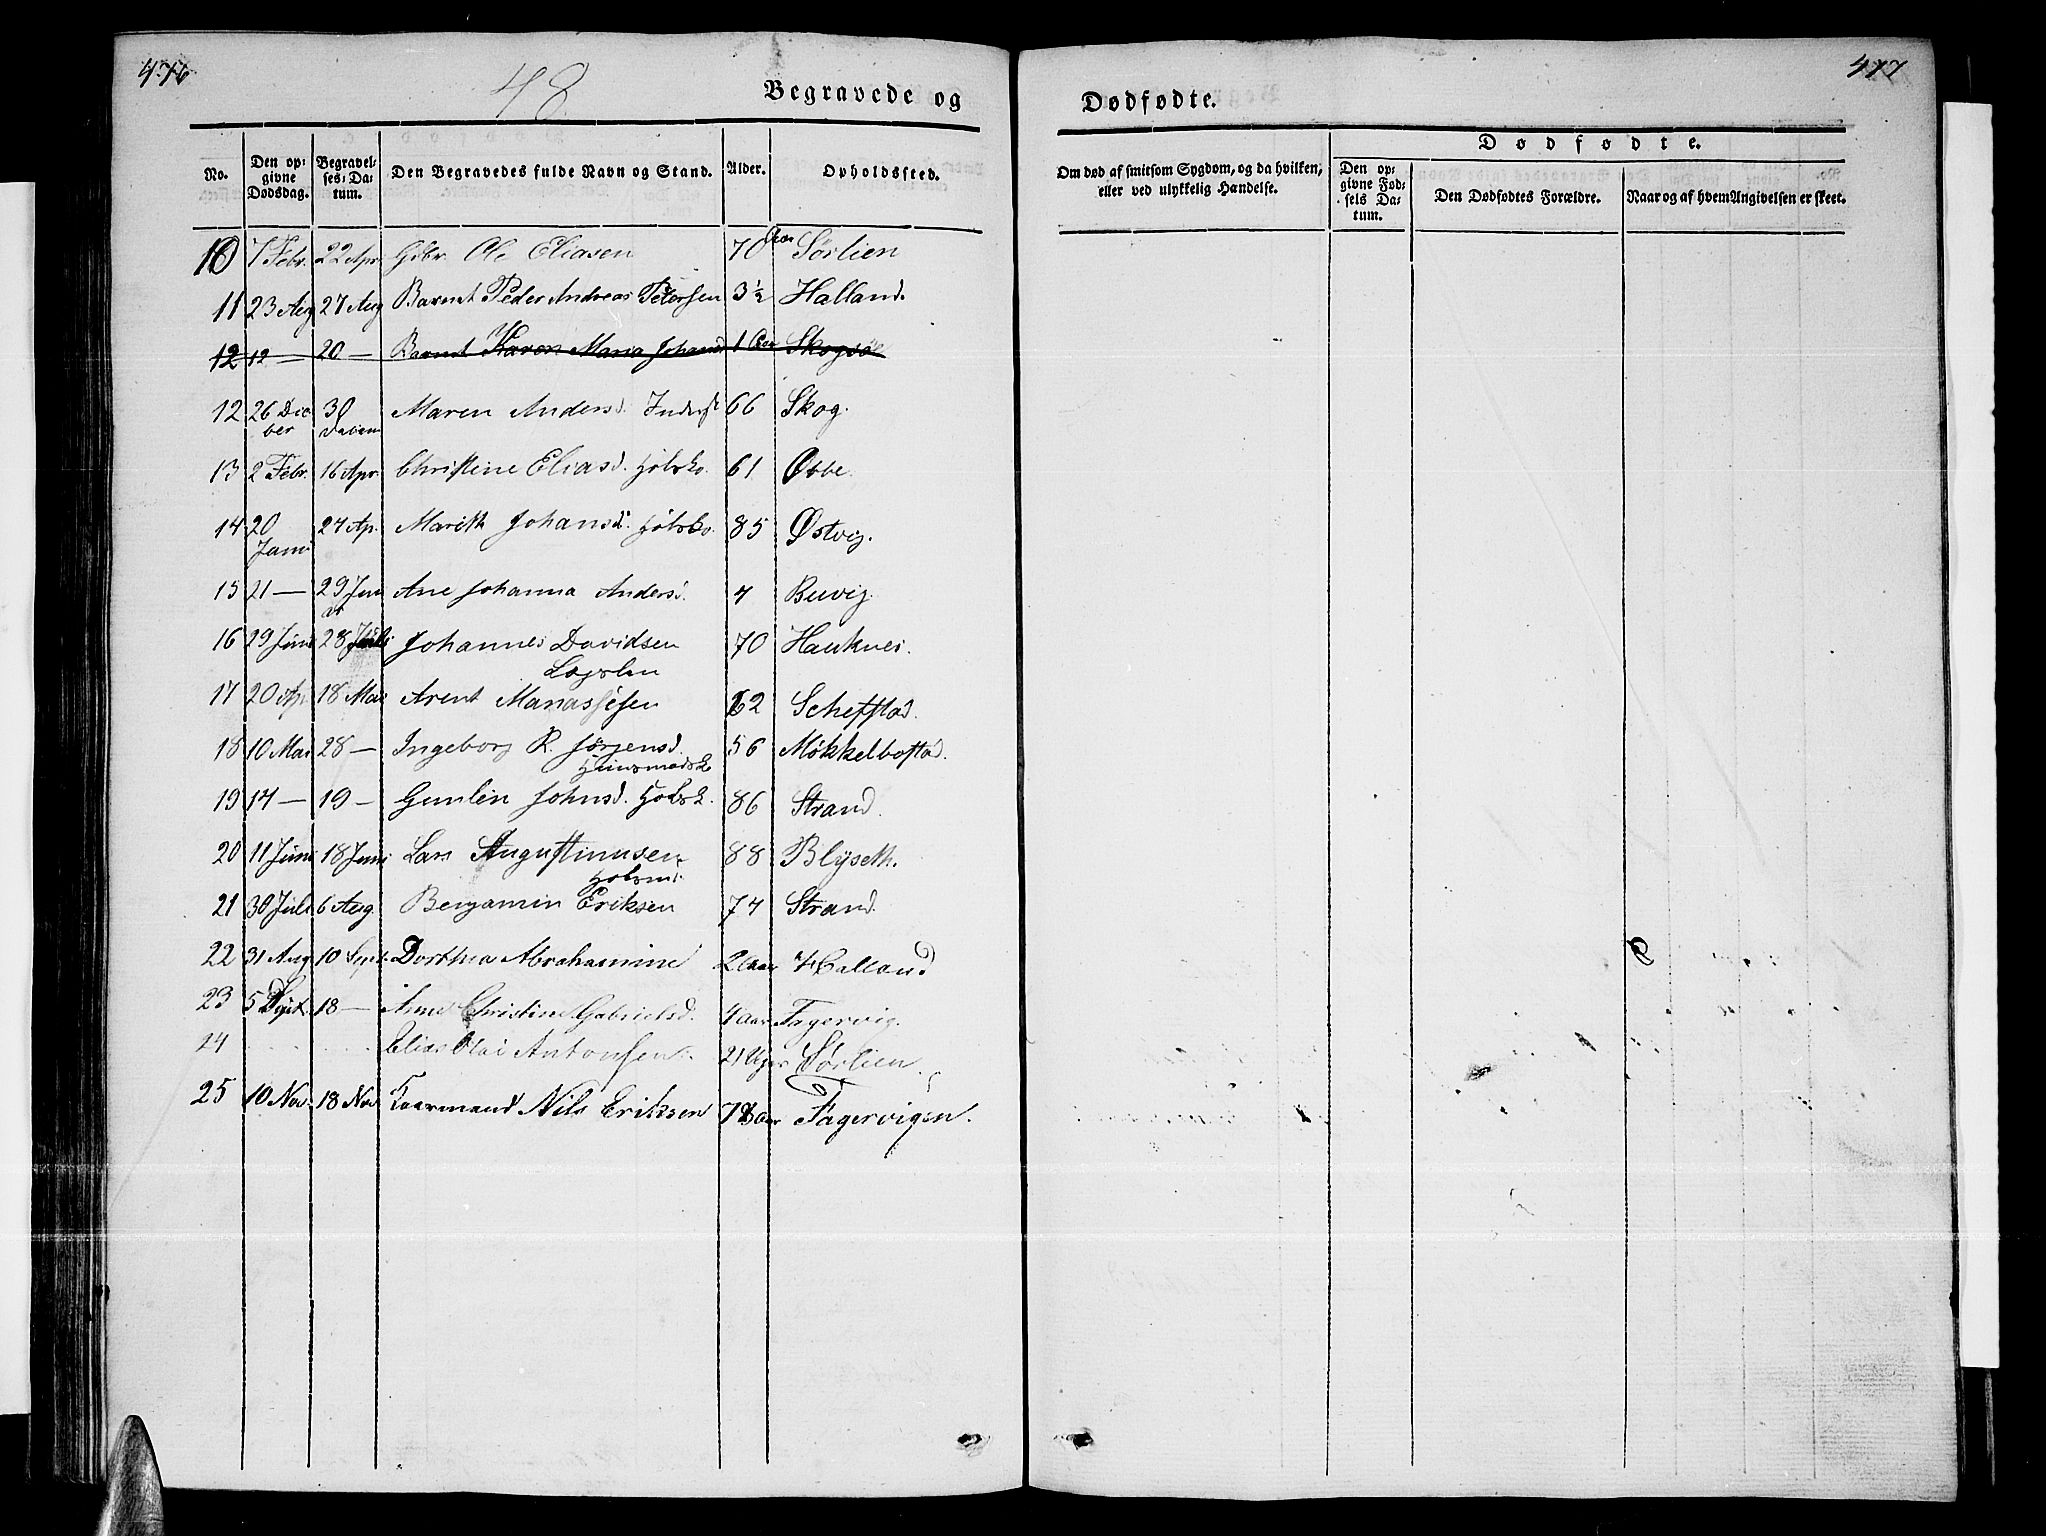 476
48
Begravede og
No.
Den op-
givne
Dødsdag.
Begravel-
ses-Da-
tum.
Den Begravedes fulde Navn og Stand.
Alder.
Opholdssted.
10 7 Febr. 22 Apr. Gdbr. Ole Eliasen 70 Aar Sørlien
11 23 Aug 27 Aug Barnet Peder Andreas Petersen 3 ½ Halland.
12 12 — 20 — Barnet Karen Maria Johansd 1 Aar Skogsø
12 26 Dec 30 Maren Andersd. Inderst 66 Skog.
ber
13 2 Febr. 16 Apr. Christine Eliasd. 61
14 20 24 Ap. Marith Johansd. 85 Østvig.
Juni
15 21 — 29 Jun Ane Johanna Andersd. 4 Buvig.
16 29 Juni 28 Juli Johannes Davidsen 70 Hauknes.
Logslen
17 20 Ap. 18 Mai Arent Manassesen 62 Scheffstad.
18 10 Mai 28 — Ingeborg R. Jørgensd. 56 Møkkelbostad.
Huusmadsk
19 17 — 19 — Gunlen Johnsd. 86 Strand.
20 11 Juni 18 Juni Lars Augustinusen 88 Blyseth.
21 30 Juli 6 Aug. Benjamin Eriksen 74 Strand.
22 31 Aug 10 Sept. Dorthea Abrahamine 2 Aar Halland
23 5 Sept. 18 — Anne Christine Gabrielsd. 4 Aar Fagervig.
24 Elias Olai Antonsen. 21 Uger Sørlien.
25 10 Nov. 18 Nov Kaarmand Nils Eriksen 78 Aar Fagervigen.
477
Dødfødte.
Om død af smitsom Sygdom, og da hvilken,
eller ved ulykkelig Hændelse.
Dødfødte.
Den op-
givne Fød-
sels Da-
tum.
Den Dødfødtes Forældre.
Naar og af hvem Angivelsen er skeet.